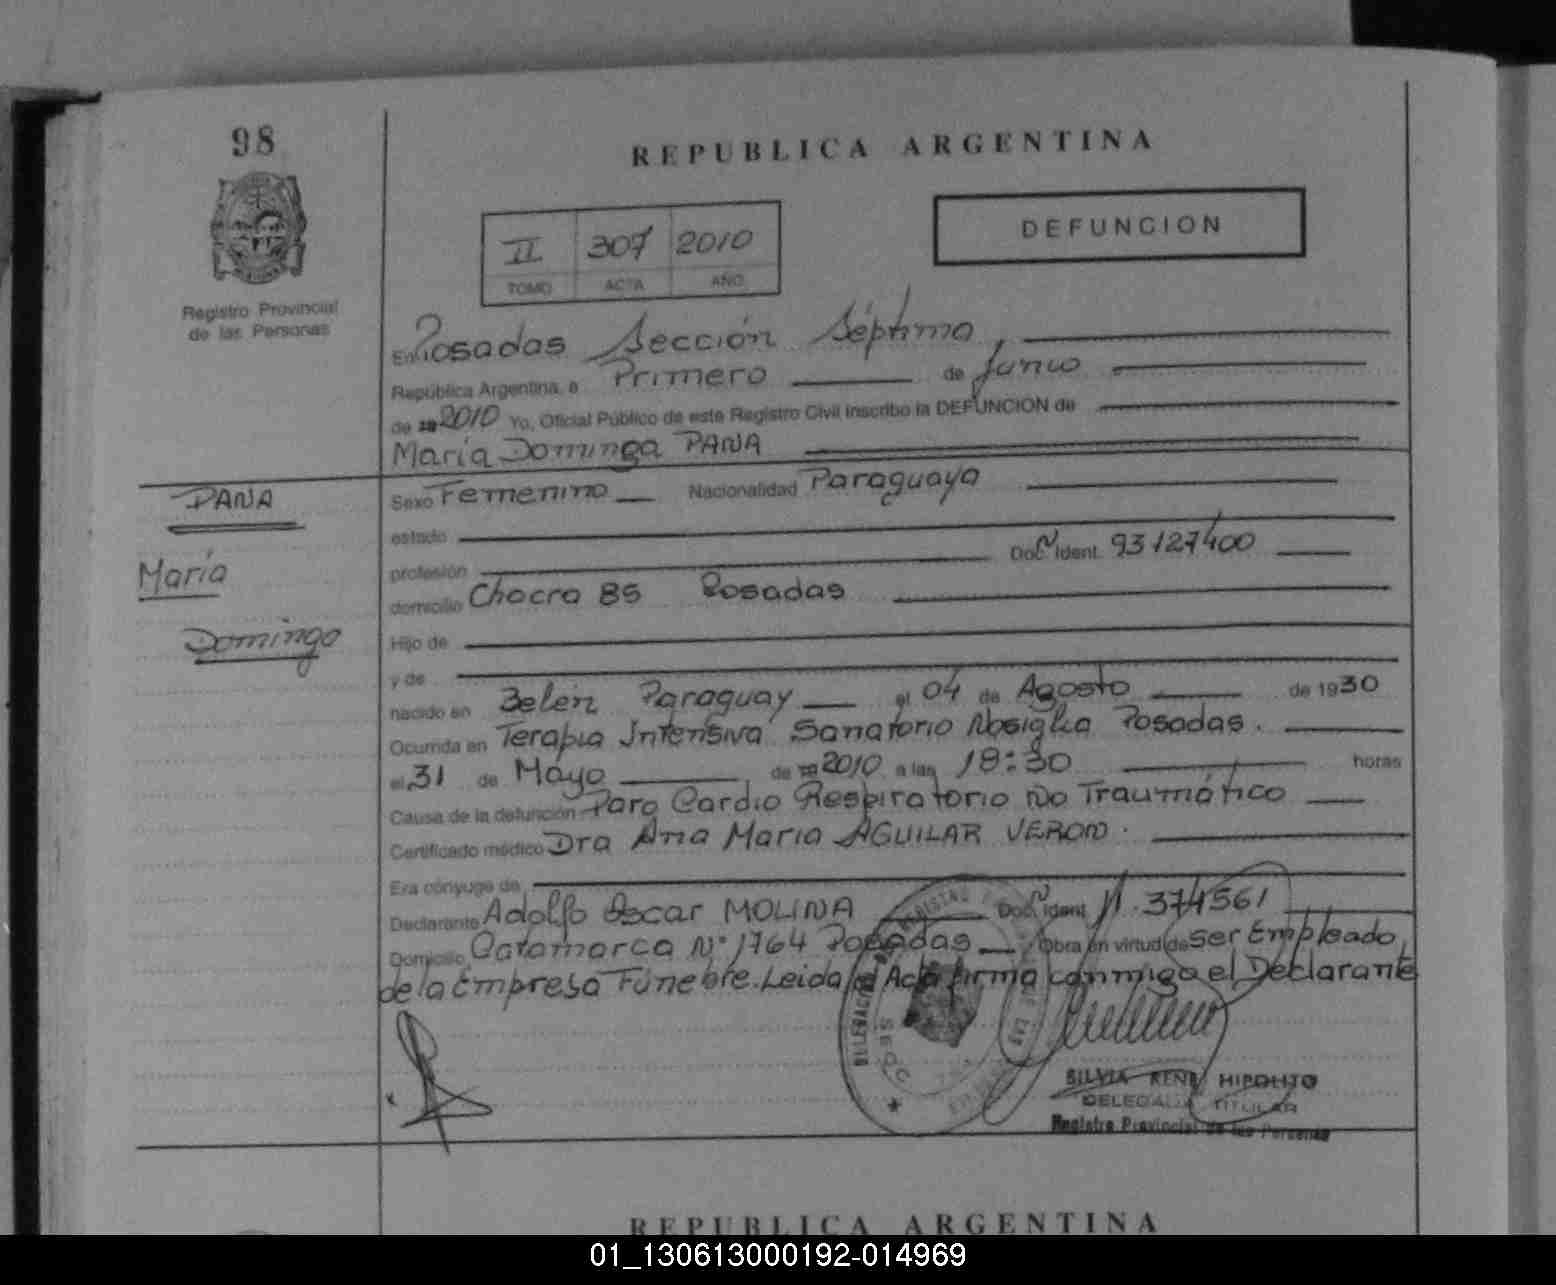 98
REPUBLICA ARGENTINA
DEFUNCION
II 307 2010
TOMO ACTA AÑO
Registro Provincial
de las Personas
En Posadas Sección Séptima
República Argentina, a Primero de Junio
de 19 2010 Yo, Oficial Público de este Registro Civil inscribo la DEFUNCION de
María Dominga PANA
PANA
María
Dominga
Sexo Femenino Nacionalidad Paraguaya
estado
profesión Doc. Ident. 93127400
domicilio Chacra 85 Posadas
Hijo de
y de
nacido en Belén Paraguay el 04 de Agosto de 1930
Ocurrida en Terapia Intensiva Sanatorio Nosiglia Posadas.
el 31 de Mayo de 19 2010 a las 18:30 horas
Causa de la defunción Paro Cardio Respiratorio No Traumático
Certificado médico Dra Ana Maria AGUILAR VERON.
Era cónyuge de
Declarante Adolfo Oscar MOLINA Doc. Ident. 11.374561
Domicilio Catamarca N° 1764 Posadas Obra en virtud de Ser Empleado
de la Empresa Fúnebre. Leida el Acta firma conmigo el Declarante
SILVIA RENE HIPOLITO
DELEGADA TITULAR
Registro Provincial de las Personas
REPUBLICA ARGENTINA
01_130613000192-014969